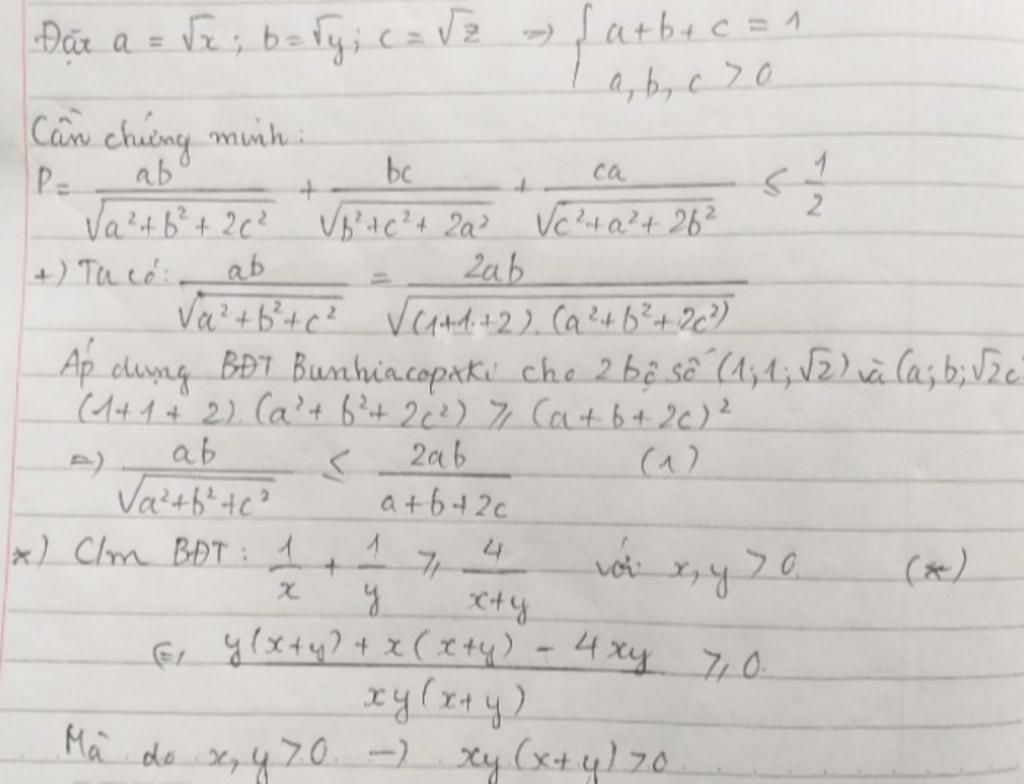 Đặt a = √x ; b = √y ; c = √z => { a + b + c = 1
a, b, c > 0
Cần chứng minh :
P = ab/√(a² + b² + 2c²) + bc/√(b² + c² + 2a²) + ca/√(c² + a² + 2b²) ≤ 1/2
+) Ta có: ab/√(a² + b² + c²) = 2ab/√((1+1+2).(a² + b² + 2c²))
Áp dụng BĐT Bunhiacopxki cho 2 bộ số (1; 1; √2) và (a; b; √2c
(1+1+2).(a² + b² + 2c²) ≥ (a + b + 2c)²
=> ab/√(a² + b² + c²) ≤ 2ab/(a + b + 2c) (1)
*) C/m BĐT : 1/x + 1/y ≥ 4/(x+y) với x, y > 0. (*)
<=> (y(x+y) + x(x+y) - 4xy)/(xy(x+y)) ≥ 0.
Mà do x, y > 0 -> xy(x+y) > 0